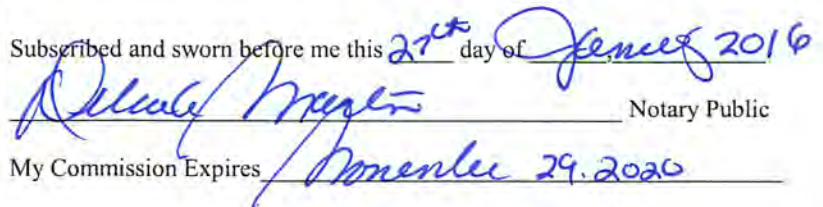 Subscribed and sworn before me this 27th day of January, 2016
Notary Public
My Commission Expires November 29. 2020